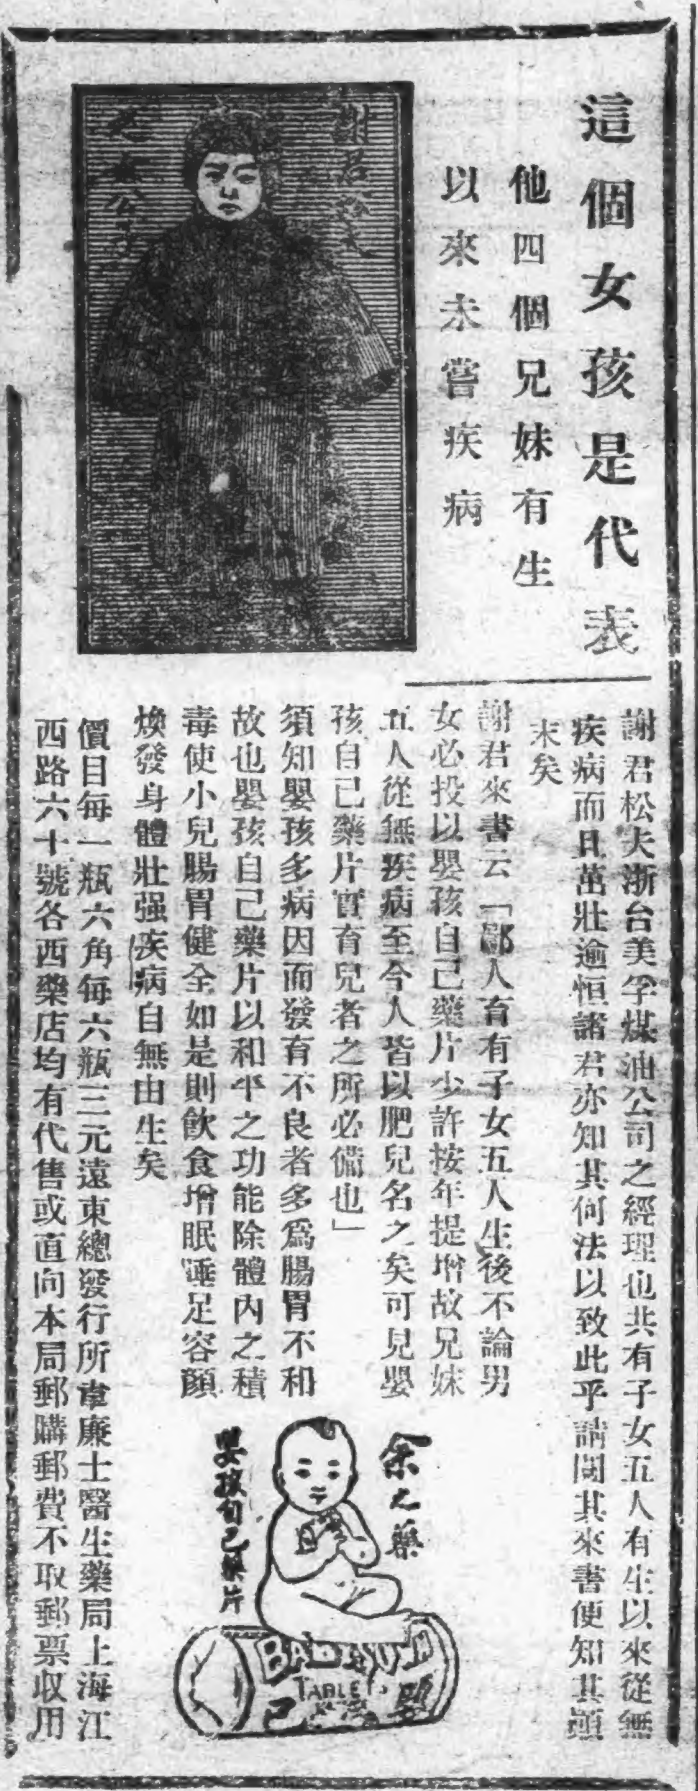 這個女孩是代表
他四個兄妹有生
以來未嘗疾病
謝君松夫
公子
謝君松夫浙台美孚煤油公司之經理也共有子女五人有生以來從無
疾病而且茁壯逾恒諸君亦知其何法以致此乎請閱其來書便知其顚
末矣
謝君來書云「鄙人育有子女五人生後不論男
女必投以嬰孩自己藥片少許按年提增故兄妹
五人從無疾病至今人皆以肥兒名之矣可見嬰
孩自己藥片實育兒者之所必備也」
須知嬰孩多病因而發育不良者多爲腸胃不和
故也嬰孩自己藥片以和平之功能除體內之積
毒使小兒腸胃健全如是則飲食增眠睡足容顏
煥發身體壯强疾病自無由生矣
價目每一瓶六角每六瓶三元遠東總發行所韋廉士醫生藥局上海江
西路六十號各西藥店均有代售或直向本局郵購郵費不取郵票收用
余之藥
嬰孩自己藥片
BABY'S OWN
TABLETS
己